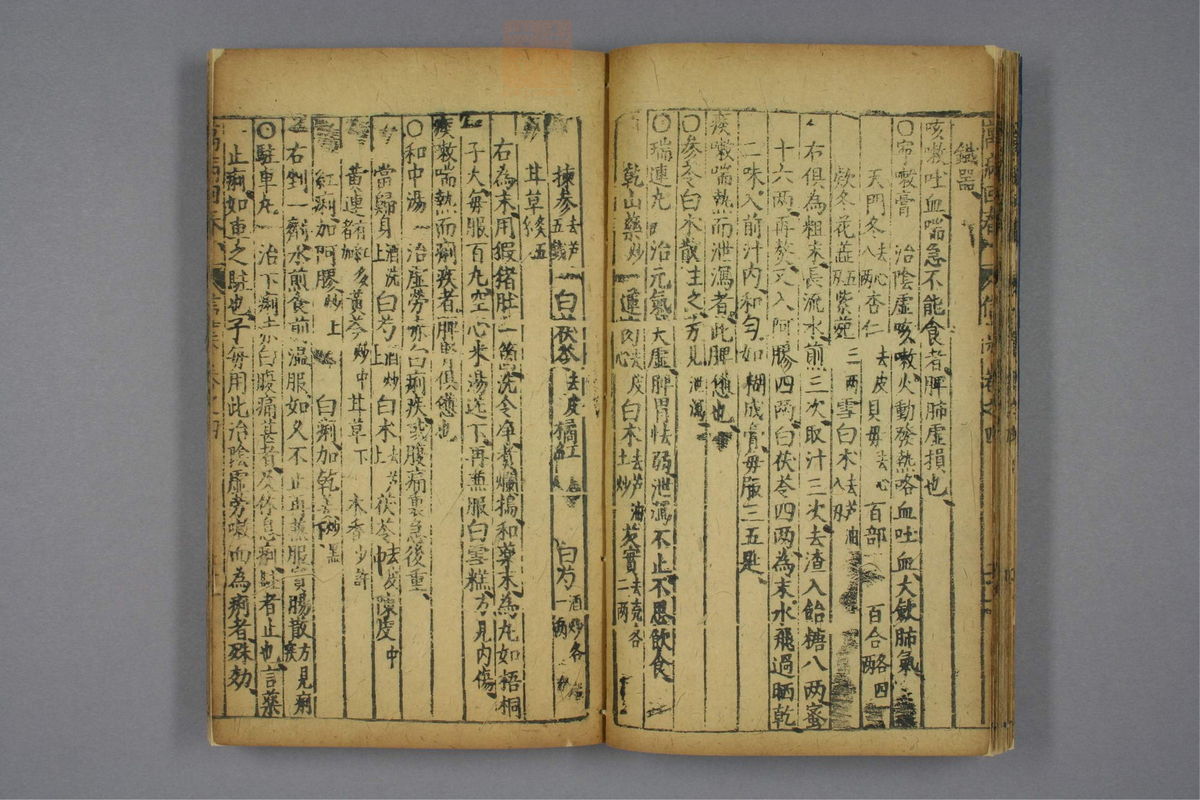 鐵器
咳嗽吐血喘急不能食者脾肺虛損也
○寧嗽膏 治陰虛咳嗽火動發熱咯血吐血大敏肺氣
天門冬去心八兩杏仁去皮貝母去心百部 百合各四兩
款冬花蕊五兩紫菀三兩雪白朮去芦油八兩
右俱為粗末長流水煎三次取汁三次去渣入飴糖八兩蜜
十六兩再熬又入阿膠四兩白茯苓四兩為末水飛過晒乾
二味入前汁內和勻如糊成膏每服三五匙
痰嗽喘熱而泄瀉者此脾憊也
○參苓白朮散主之方見泄瀉
○瑞連丸 治元氣大虛脾胃怯弱泄瀉不止不思飲食
乾山藥炒 蓮肉去皮心白朮去芦油土炒芡實去壳各二兩
揀參去芦五錢 白茯苓去皮橘紅 白芍酒炒各一兩
甘草炙五
右為末用猳猪肚一箇洗令净煮爛搗和藥末為丸如梧桐
子大每服百丸空心米湯送下再兼服白雪糕方見內傷
痰嗽喘熱而痢疾者脾胃俱憊也
○和中湯 治虛勞赤白痢疾或腹痛裏急後重
當歸身酒洗上白芍酒炒上白朮去芦上茯苓去皮中陳皮中
黃連 黃芩炒中甘草下木香少許
紅痢加阿膠炒上 白痢加乾姜炒黑下
右剉一劑水煎食前溫服如久不止兼服實腸散方見痢疾
○駐車丸 治下痢赤白腹痛甚者及休息痢駐者止也言藥
止痢如車之駐也予每用此治陰虛勞嗽血為痢者殊効